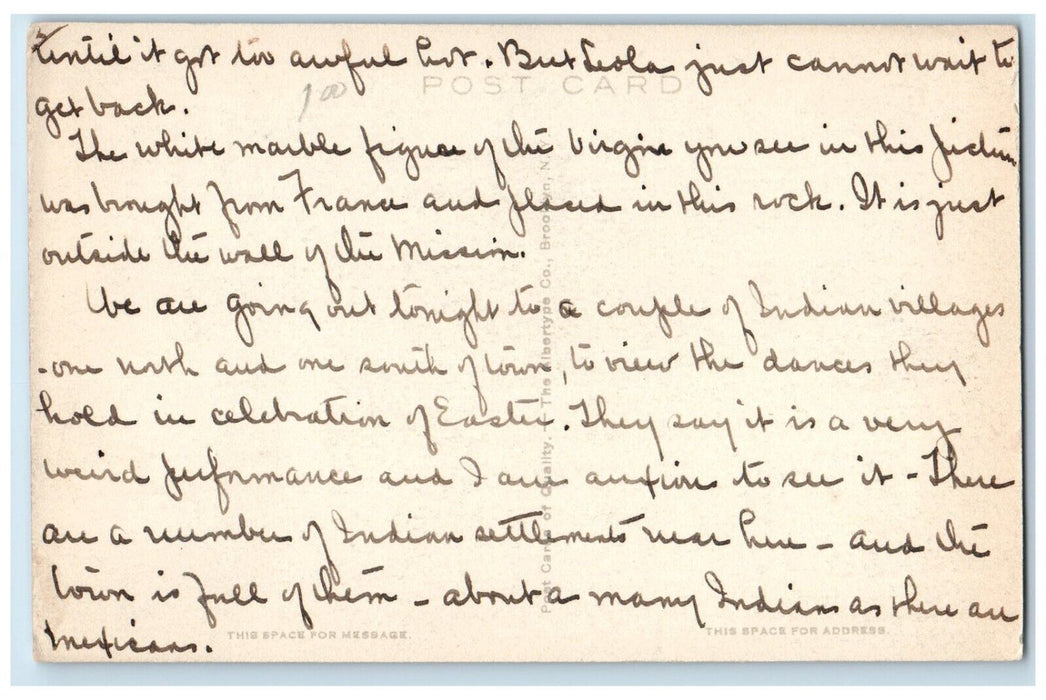 until it got too awful hot. But Leola just cannot wait to
POST CARD
get back.
1 00
The white marble figure of the Virgin you see in this picture
was brought from France and placed in this rock. It is just
outside the wall of the Mission.
We are going out tonight to a couple of Indian villages
-one north and one south of town, to view the dances they
hold in celebration of Easter. They say it is a very
weird performance and I am anxious to see it - There
are a number of Indian settlements near here - and the
town is full of them - about a many Indians as there are
Mexicans.
THIS SPACE FOR MESSAGE.
THIS SPACE FOR ADDRESS.
Post Cards of Quality. - The Albertype Co., Brooklyn, N.